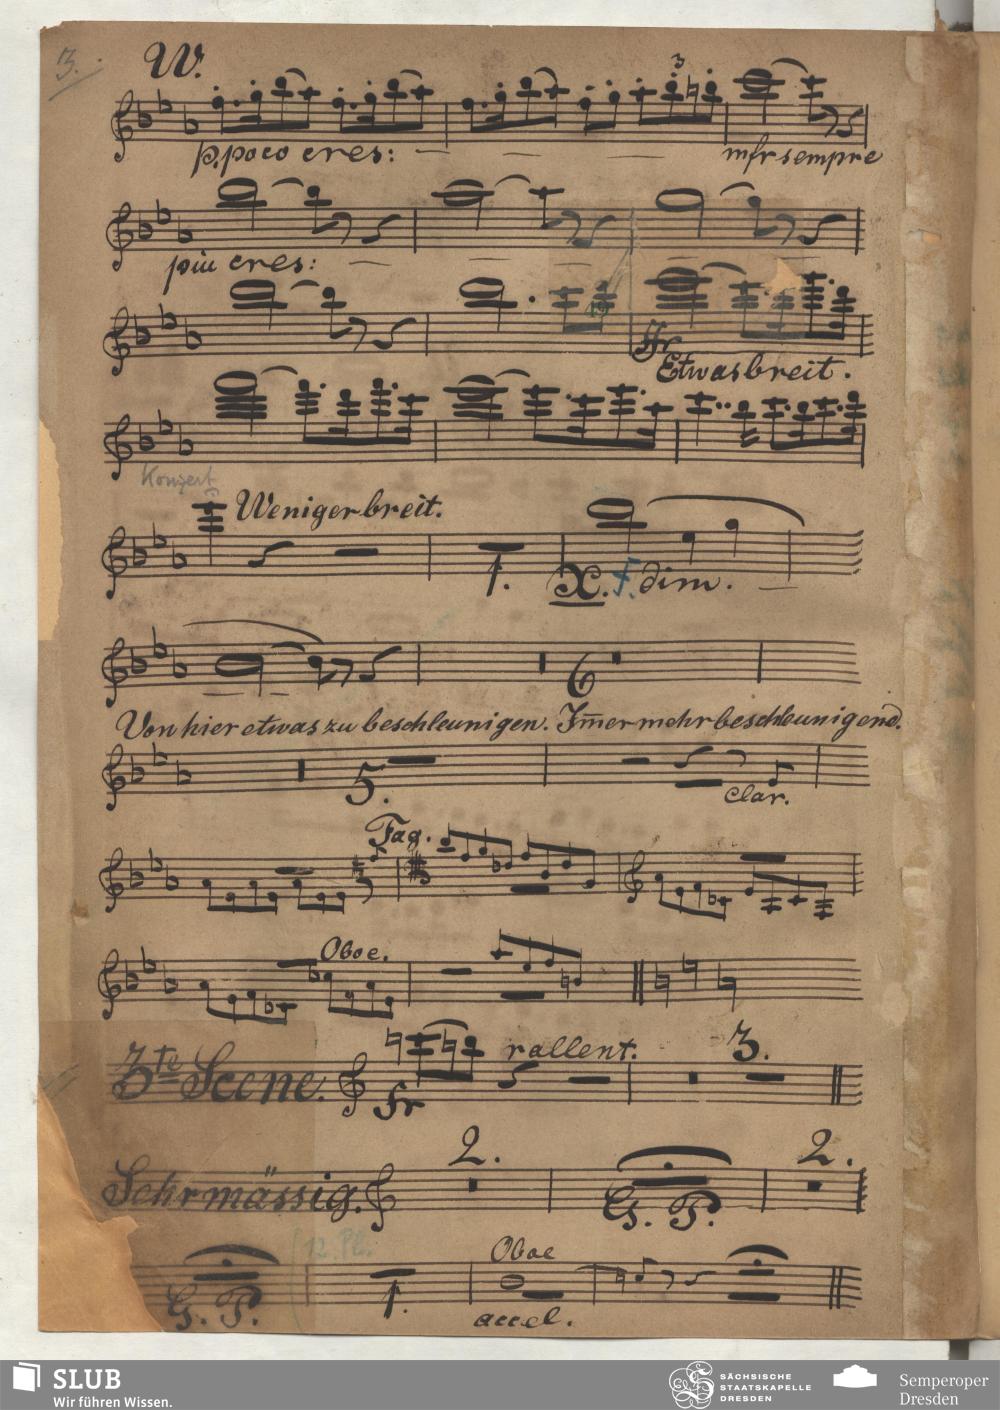 3.
W.
3
p. poco cres:
mfr sempre
piu cres:
49
ffr
Etwas breit.
Konzert
Weniger breit.
1.
X. f. dim.
6
Von hier etwas zu beschleunigen. Im̄er mehr beschleunigend.
5.
clar.
Fag.
Oboe.
3te Scene.
fr
rallent.
3.
Sehr mässig.
2.
G. P.
2.
G. P.
12. Pl.
1.
Oboe
accel.
SLUB
Wir führen Wissen.
SÄCHSISCHE
STAATSKAPELLE
DRESDEN
Semperoper
Dresden